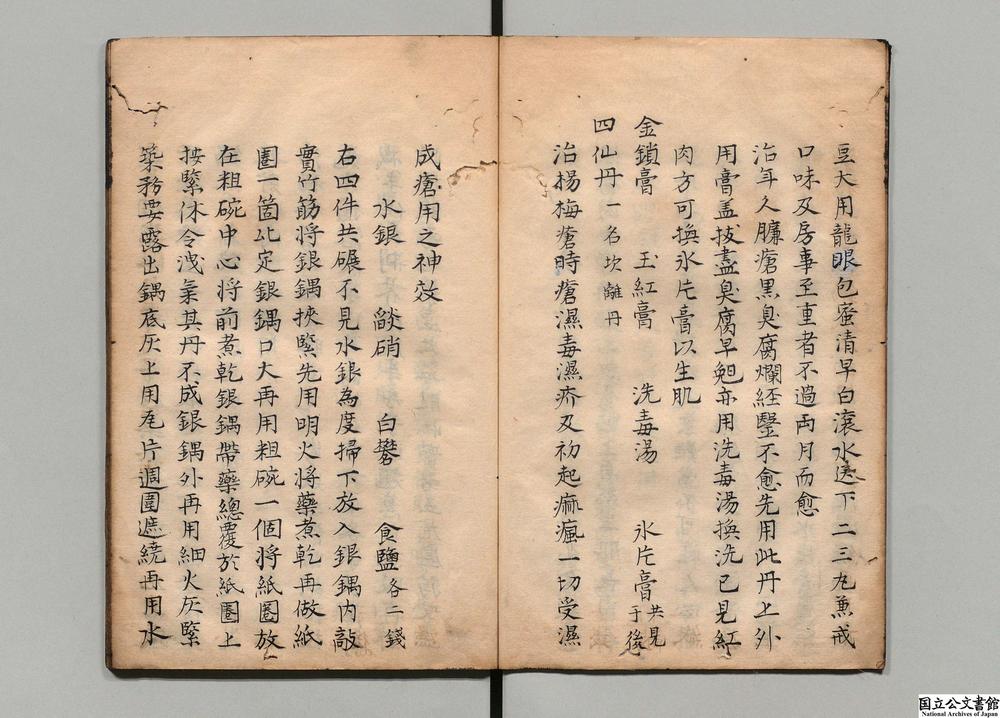 豆大用龍眼包蜜清早白滾水送下二三九兼戒
口味及房事至重者不過兩月而愈
治年久臁瘡黑臭腐爛経醫不愈先用此丹上外
用膏盖拔盡臭腐早晚亦用洗毒湯換洗已見紅
肉方可換氷片膏以生肌
金鎖膏 玉紅膏 洗毒湯 氷片膏共見于後
四仙丹一名坎離丹
治揚梅瘡時瘡濕毒濕疥及初起痲瘋一切受濕
成瘡用之神效
水銀 燄硝 白礬 食鹽各二錢
右四件共碾不見水銀為度掃下放入銀鍋内敲
實竹筋將銀鍋挾緊先用明火將藥煮乾再做紙
圏一箇比定銀鍋口大再用粗碗一個將紙圏放
在粗碗中心將前煮乾銀鍋帶藥總覆於紙圏上
按緊休令洩氣其丹不成銀鍋外再用細火灰緊
築務要露出鍋底灰上用瓦片週圍遮繞再用水
国立公文書館
National Archives of Japan